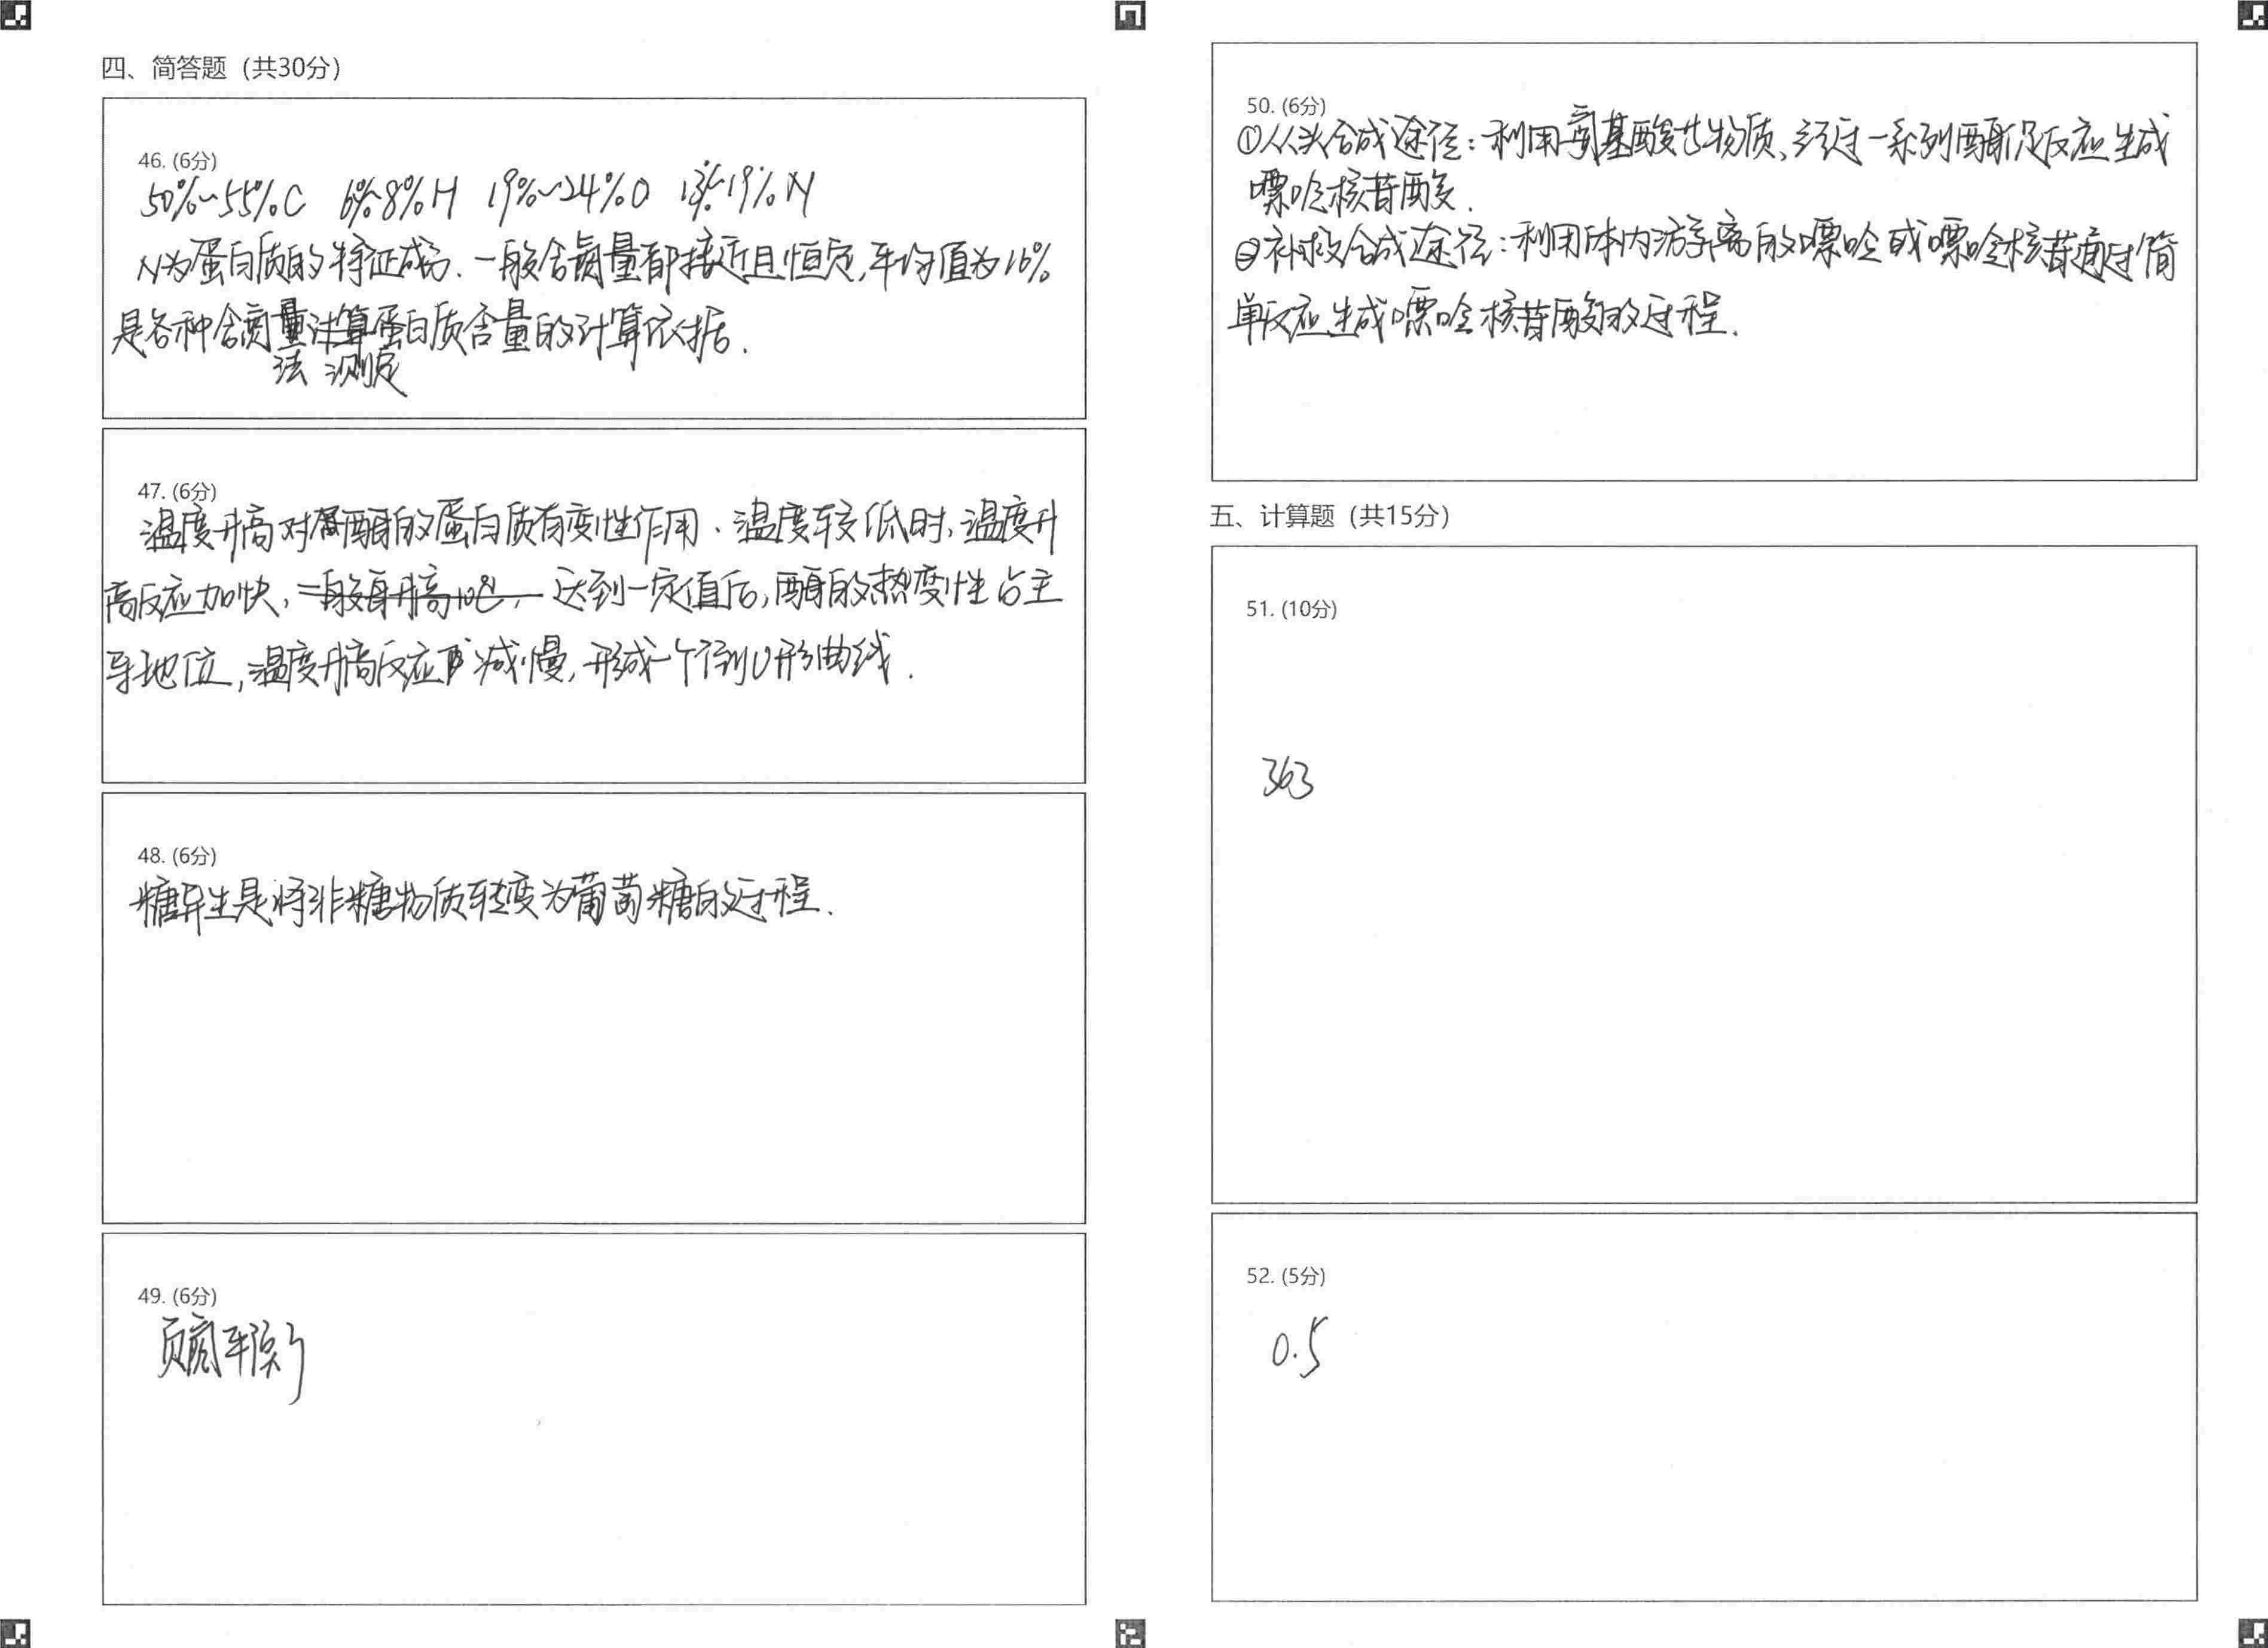 四、简答题（共30分）
46. (6分)
50%~55%C 6%~8%H 19%~24%O 13%~19%N
N为蛋白质的特征成分.一般含氮量都接近且恒定,平均值为16%
是各种含氮量法测定蛋白质含量的计算依据.
47. (6分)
温度升高对酶的蛋白质有变性作用.温度较低时,温度升
高反应加快,一般每升高10℃,达到一定值后,酶的热变性占主
导地位,温度升高反应减慢,形成一个倒U形曲线.
48. (6分)
糖异生是将非糖物质转变为葡萄糖的过程.
49. (6分)
负氮平衡
50. (6分)
①从头合成途径:利用氨基酸等物质,经过一系列酶促反应生成
嘌呤核苷酸.
②补救合成途径:利用体内游离的嘌呤或嘌呤核苷通过简
单反应生成嘌呤核苷酸的过程.
五、计算题（共15分）
51. (10分)
363
52. (5分)
0.5